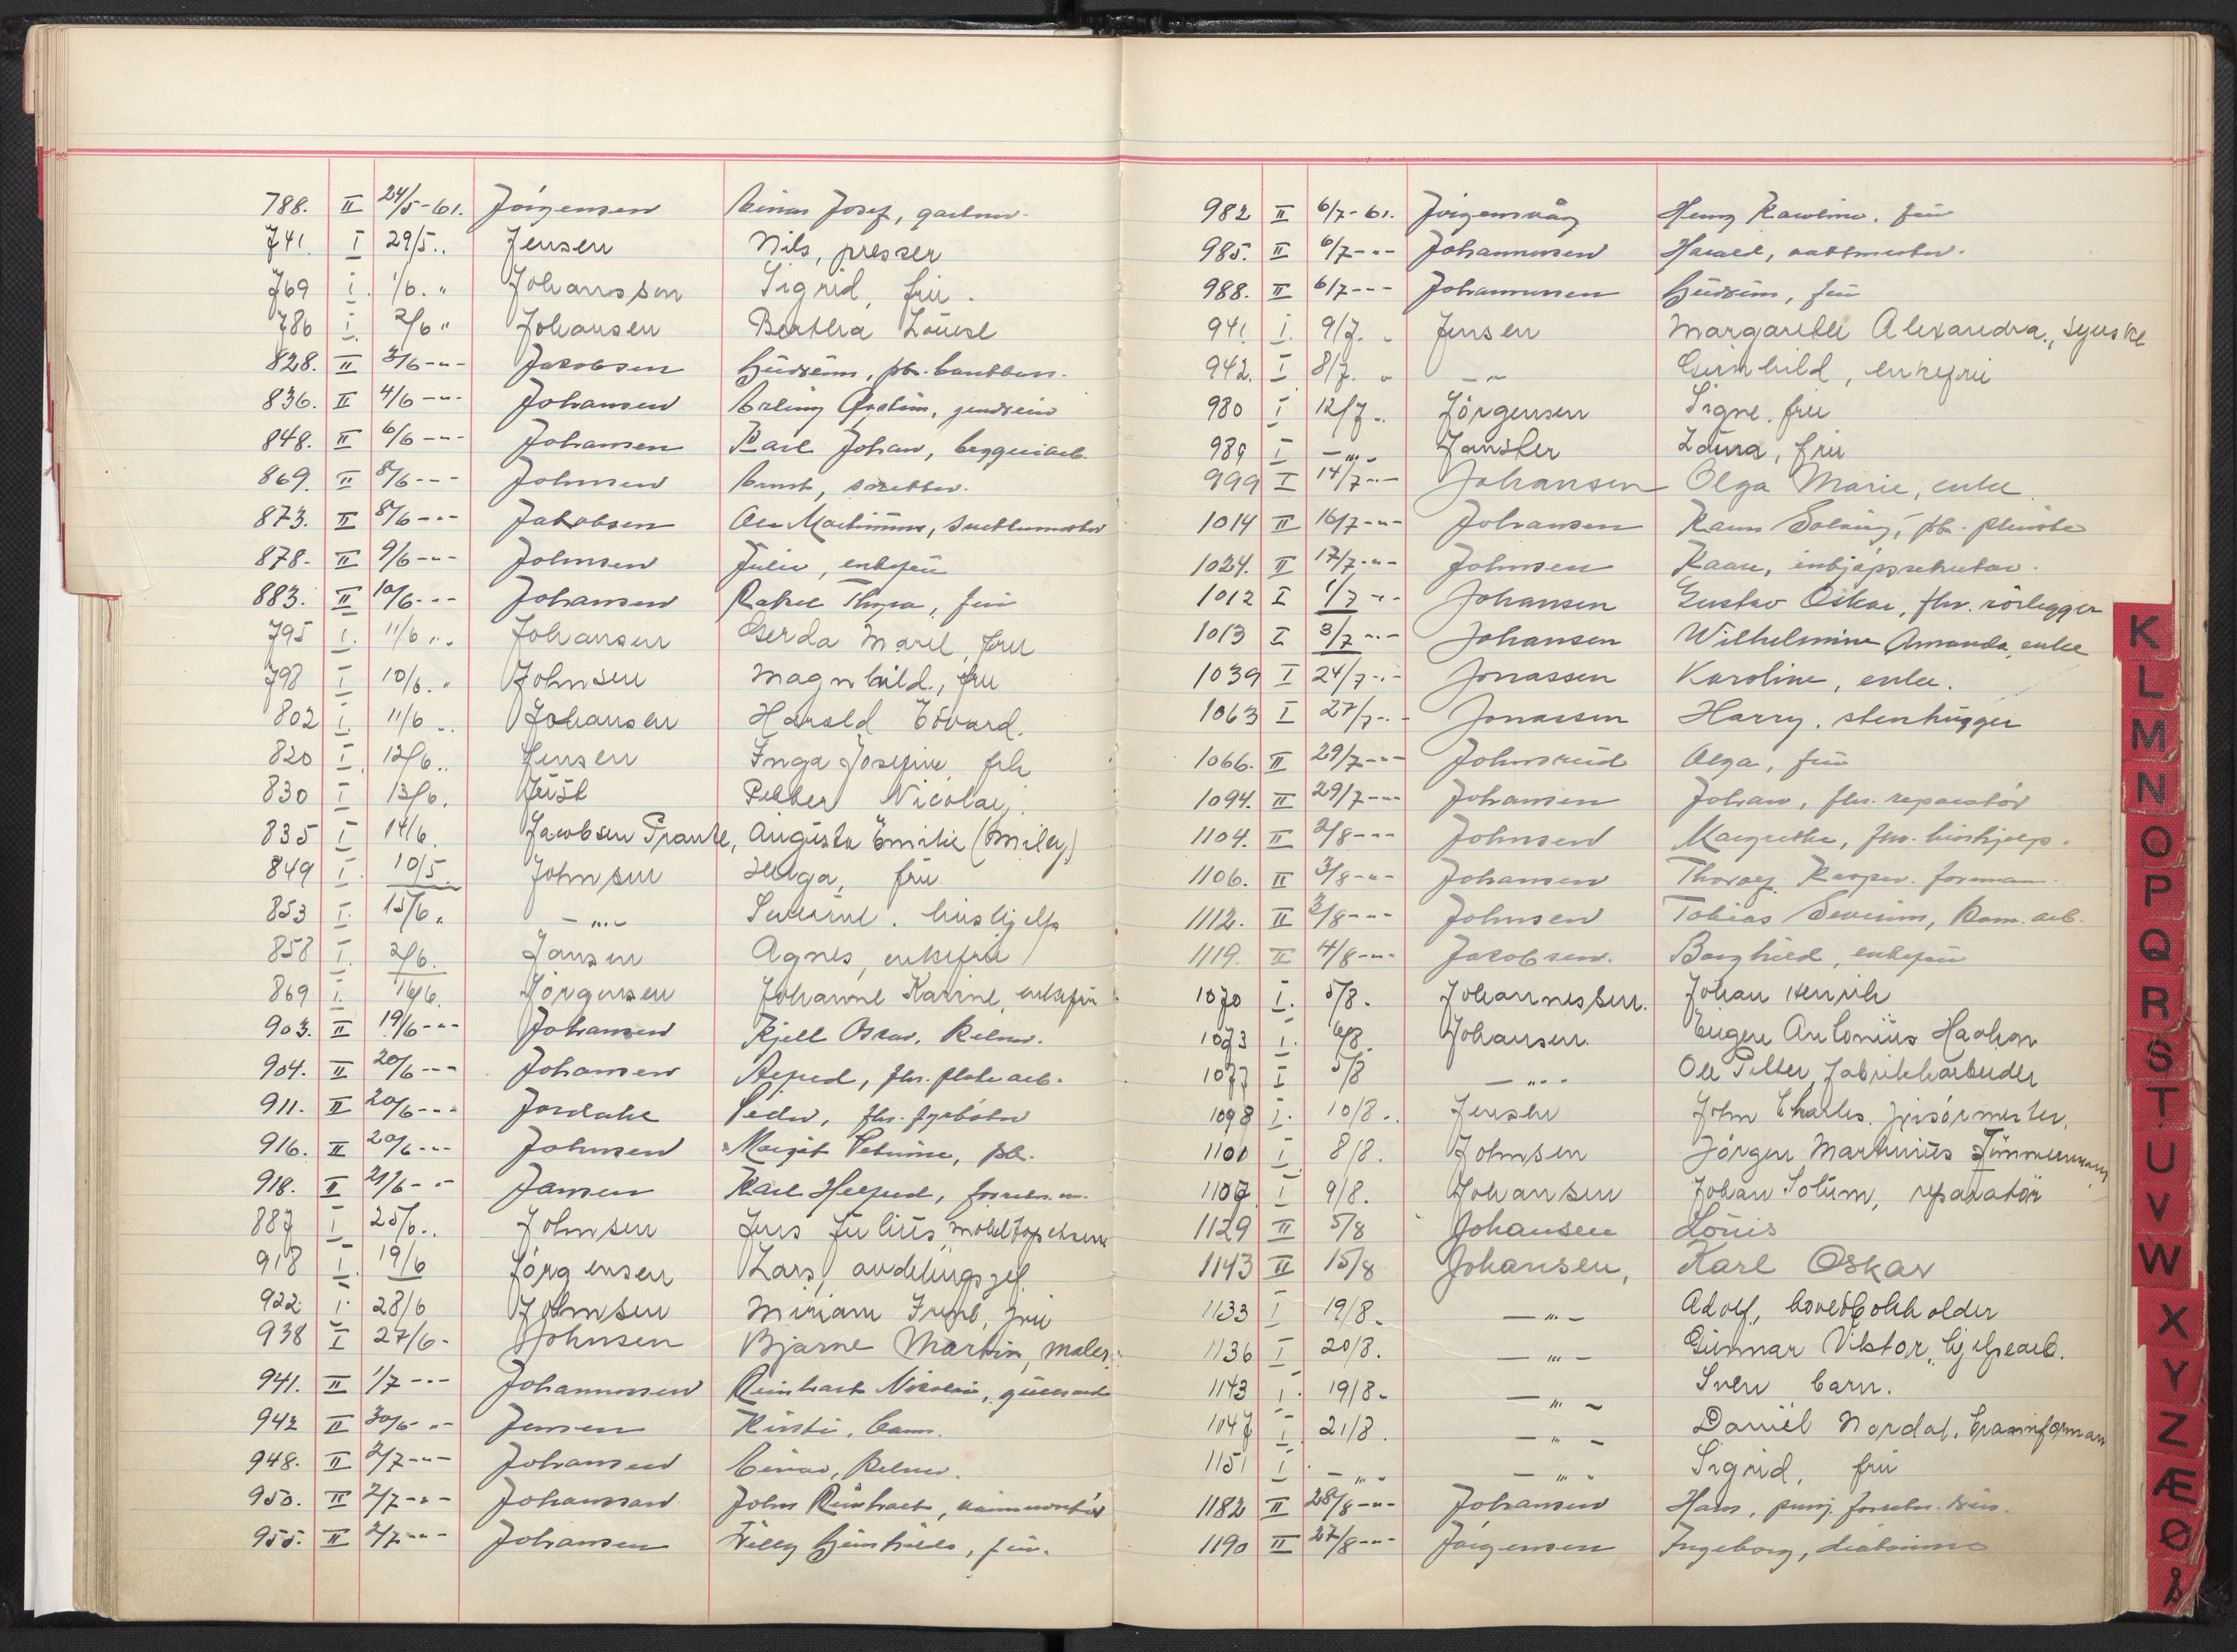 788. II 24/5-61. Jörgensen Einar Josef, gartner.
741. I 29/5 .. Jensen Nils, presser
769 I. 1/6. " Johanssen Sigrid, fru.
786 I. 2/6 " Johansen Berthea Louise
828. II 3/6 -"- Jakobsen Gudrun, pb.
836. II 4/6 -"- Johansen Erling Øystein,
848. II 6/6 -"- Johansen Karl Johan, bryggeriarb.
869. II 8/6 -"- Johnsen Ernst,
873. II 8/6 -"- Jakobsen Ole Martinius,
878. II 9/6 -"- Johnsen Julie, enkefru
883. II 10/6 -"- Johansen Rakel Thyra, fru
795 I. 11/6 .. Johansen Gerda Marel, fru
798 I 10/6. " Johnsen Magnhild, fru
802 I. 11/6 .. Johansen Harald Edvard.
820 I. 12/6 .. Jensen Inga Josefine, frk
830 I 13/6. Juist Petter Nicolay.
835 I 14/6. Jacobsen Prante, Augusta Emilie (Miley)
849 I. 10/5. Johnsen Helga, fru
853 I. 15/6. -"- Severine. hushjelp
858 I. 2/6. Jansen Agnes, enkefru
869 I. 16/6. Jörgensen Johanne Karine, enkefru
903. II 19/6 -"- Johansen Kjell Oskar, kelner.
904. II 20/6 -"- Johansen Alfred, fhv. platearb.
911. II 20/6 -"- Jordahl Peder, fhv. fyrböter
916. II 20/6 -"- Johnsen Margit Petrine, pb.
918. II 21/6 -"- Jansen Karl Helfred,
887 I 25/6 .. Johnsen Jens Julius, möbeltapetserer
918 I. 19/6 Jörgensen Lars, avdelingssjef
922 I. 28/6 Johnsen Miriam Irene, fru
938 I 27/6 - Johnsen Bjarne Martin, maler.
941. II 1/7 -"- Johannessen Reinhart Nicolai,
942 II 30/6 -"- Jensen Kirsti, barn.
948. II 2/7 -"- Johansen Einar, kelner.
950. II 2/7 -"- Johansson John Reinhart,
955. II 2/7 -"- Johansen Villy Gunhilde, fru.
982 II 6/7-61. Jörgensvåg Henny Karoline, fru
985. II 6/7 -"- Johannessen Harald, vaktmester.
988. II 6/7 -"- Johannessen Gudrun, fru
941 I. 9/7. " Jensen Margarethe Alexandra, syerske
942. I 8/7. " -"- Gunhild, enkefru
980 I 12/7 .. Jörgensen Signe, fru
989 I -"- Jansler Laura, fru
999 I 14/7 -"- Johansen Olga Marie, enke.
1014 II 16/7 -"- Johansen Karen Solveig, pb. pleierske
1024. II 17/7 -"- Johnsen Kaare, innkjøpssekretær.
1012 I 1/7 -"- Johansen Gustav Oskar, fhv. rörlegger
1013 I 3/7 -"- Johansen Wilhelmine Amanda, enke
1039 I 24/7 -"- Jonassen Karoline, enke.
1063 I 27/7 -"- Jonassen Harry, stenhugger
1066. II 29/7 -"- Johnsrud Olga, fru
1094. II 29/7 -"- Johansen Johan, fhv. reparatör
1104. II 2/8 -"- Johnsen Margrethe, fhv. hushjelp.
1106. II 3/8 -"- Johansen Thoralf Kasper. formann
1112. II 2/8 -"- Johnsen Tobias Severin, kom. arb.
1119. II 4/8 -"- Jakobsen. Borghild, enkefru
1070 I. 5/8. Johannessen. Johan Henrik
1073 I. 6/8. Johansen. Eugen Antonius Haakon
1077 I 5/8 -"- Ole Petter, fabrikkarbeider
1098 I. 10/8 .. Jensen John Charles. frisörmester.
1100 I 8/8. Johnsen Jörgen Martinius Tömmermann
1107 I 9/8. Johansen Johan Solum, reparatör
1129 II 5/8 Johansen Louis
1143 II 15/8 Johansen, Karl Oskar
1133 I 19/8. -"- Adolf, hovedbokholder
1136 I 20/8. -"- Gunnar Viktor, hjelpearb.
1143 I. 19/8. -"- Sven barn.
1147 I 21/8. -"- Daniel Nordal,
1151 I -"- -"- Sigrid, fru
1182 II 28/8 -"- Johansen Hans,
1190 II 27/8 -"- Jörgensen Ingeborg, diakonisse
K
L
M
N
O
P
Q
R
S
T
U
V
W
X
Y
Z
Æ
Ø
Å